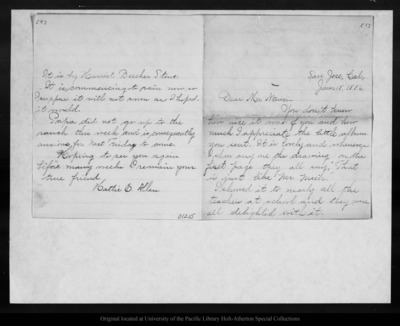 San José, Cal.,
Jan. 18, 1886
Dear Mr. Muir:
You don't know
how nice it was of you and how
much I appreciate the little album
you sent. It is lovely and whenever
I show any one the drawing on the
first page they all say, That
is just like Mr. Muir.
I showed it to nearly all the
teachers at school and they were
all delighted with it.
It is by Harriet Beecher Stowe.
It is commencing to rain now so
I suppose it will not snow as I hoped
it would.
Papa did not go up to the
ranch this week and is consequently
for next Friday to come.
Hoping to see you again
before many weeks I remain your
true friend,
E. Allen
01215
Original located at University of the Pacific Library Holt-Atherton Special Collections